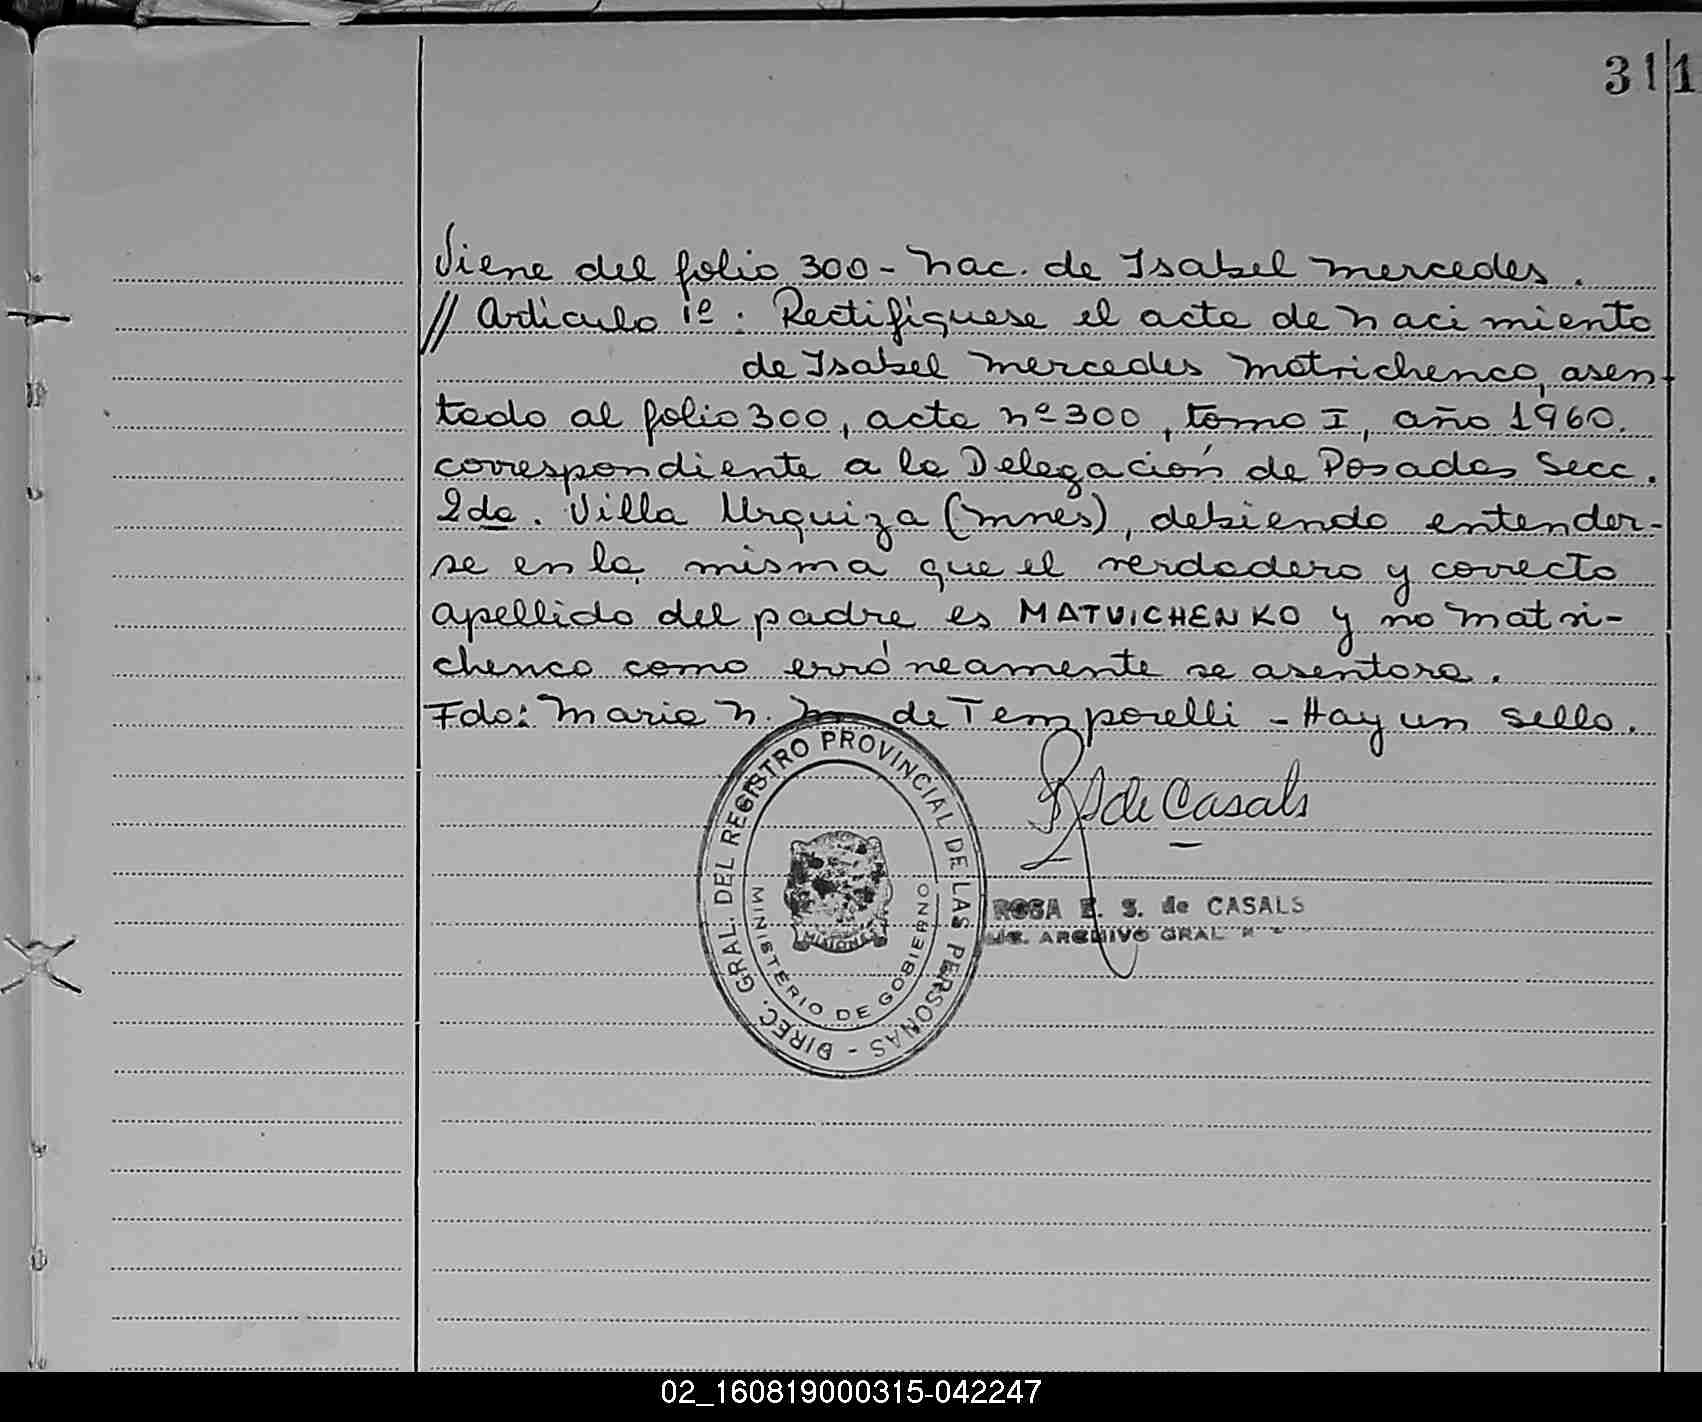 311
Viene del folio 300 - Nac. de Isabel Mercedes.
// Artículo 1º: Rectifíquese el acta de nacimiento
de Isabel Mercedes Matrichenco, asen-
tada al folio 300, acta nº 300, tomo I, año 1960.
correspondiente a la Delegación de Posadas Secc.
2da. Villa Urquiza (Mnes), debiendo entender-
se en la misma que el verdadero y correcto
apellido del padre es MATVICHENKO y no Matri-
chenco como erróneamente se asentara.
Fdo: Maria N. M. de Temporelli - Hay un sello.
DIREC. GRAL. DEL REGISTRO PROVINCIAL DE LAS PERSONAS -
MINISTERIO DE GOBIERNO
MISIONES
de Casals
ROSA E. S. de CASALS
ARCHIVO GRAL
02_160819000315-042247